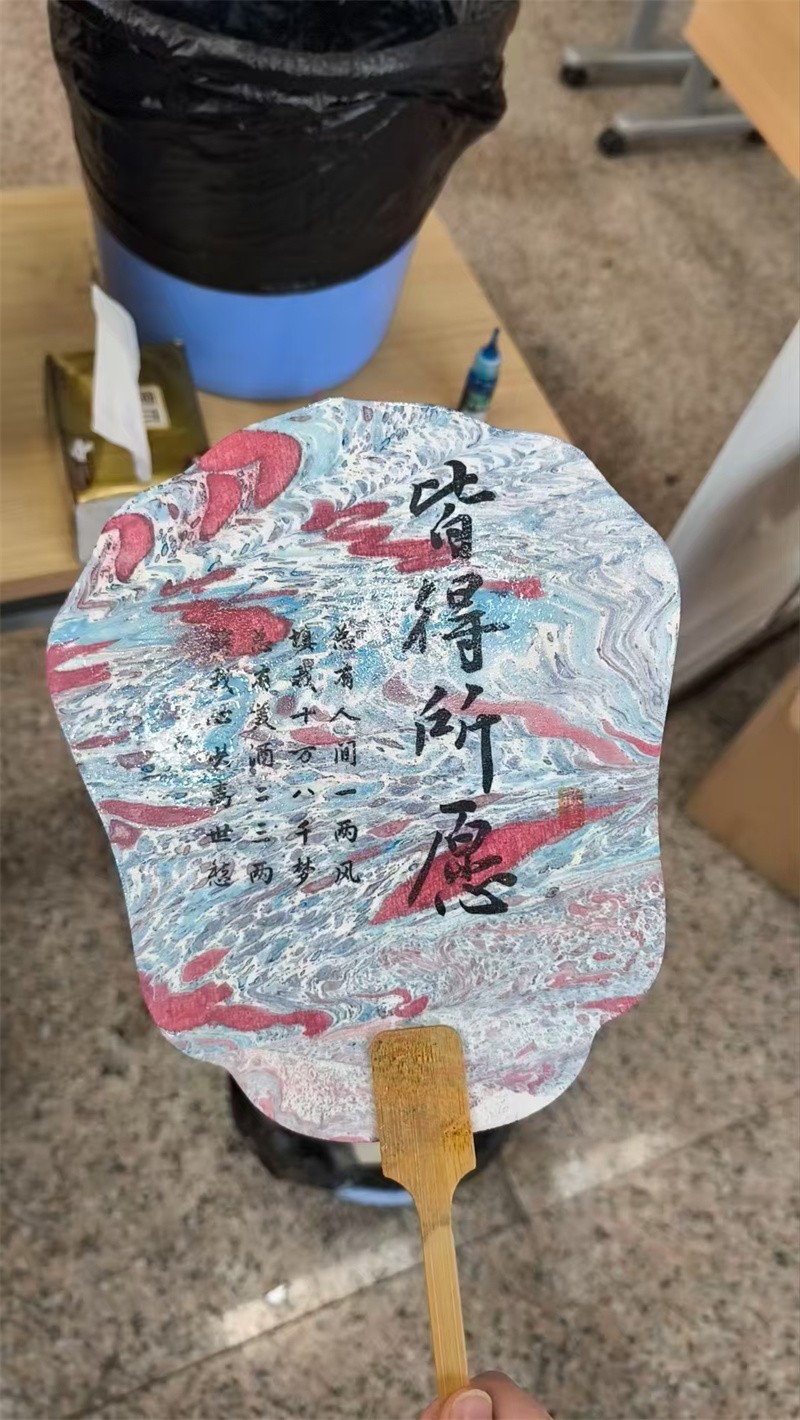 皆得所愿
总有人间一两风
填我十万八千梦
有美酒二三两
我心头万世愁